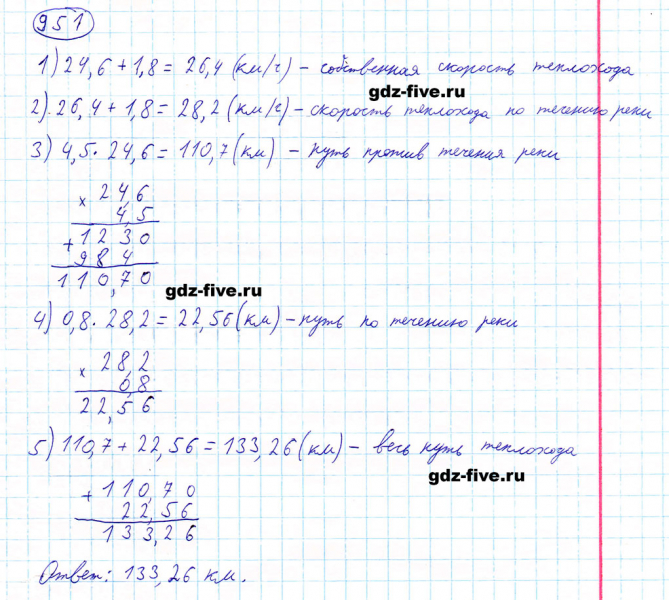 951
1) 24,6 + 1,8 = 26,4 (км/ч) – собственная скорость теплохода
gdz-five.ru
2) 26,4 + 1,8 = 28,2 (км/ч) – скорость теплохода по течению реки
3) 4,5 · 24,6 = 110,7 (км) – путь против течения реки
× 24,6
4,5
+ 1230
984
110,70
gdz-five.ru
4) 0,8 · 28,2 = 22,56 (км) – путь по течению реки
× 28,2
0,8
22,56
5) 110,7 + 22,56 = 133,26 (км) – весь путь теплохода
gdz-five.ru
+ 110,70
22,56
133,26
Ответ: 133,26 км.